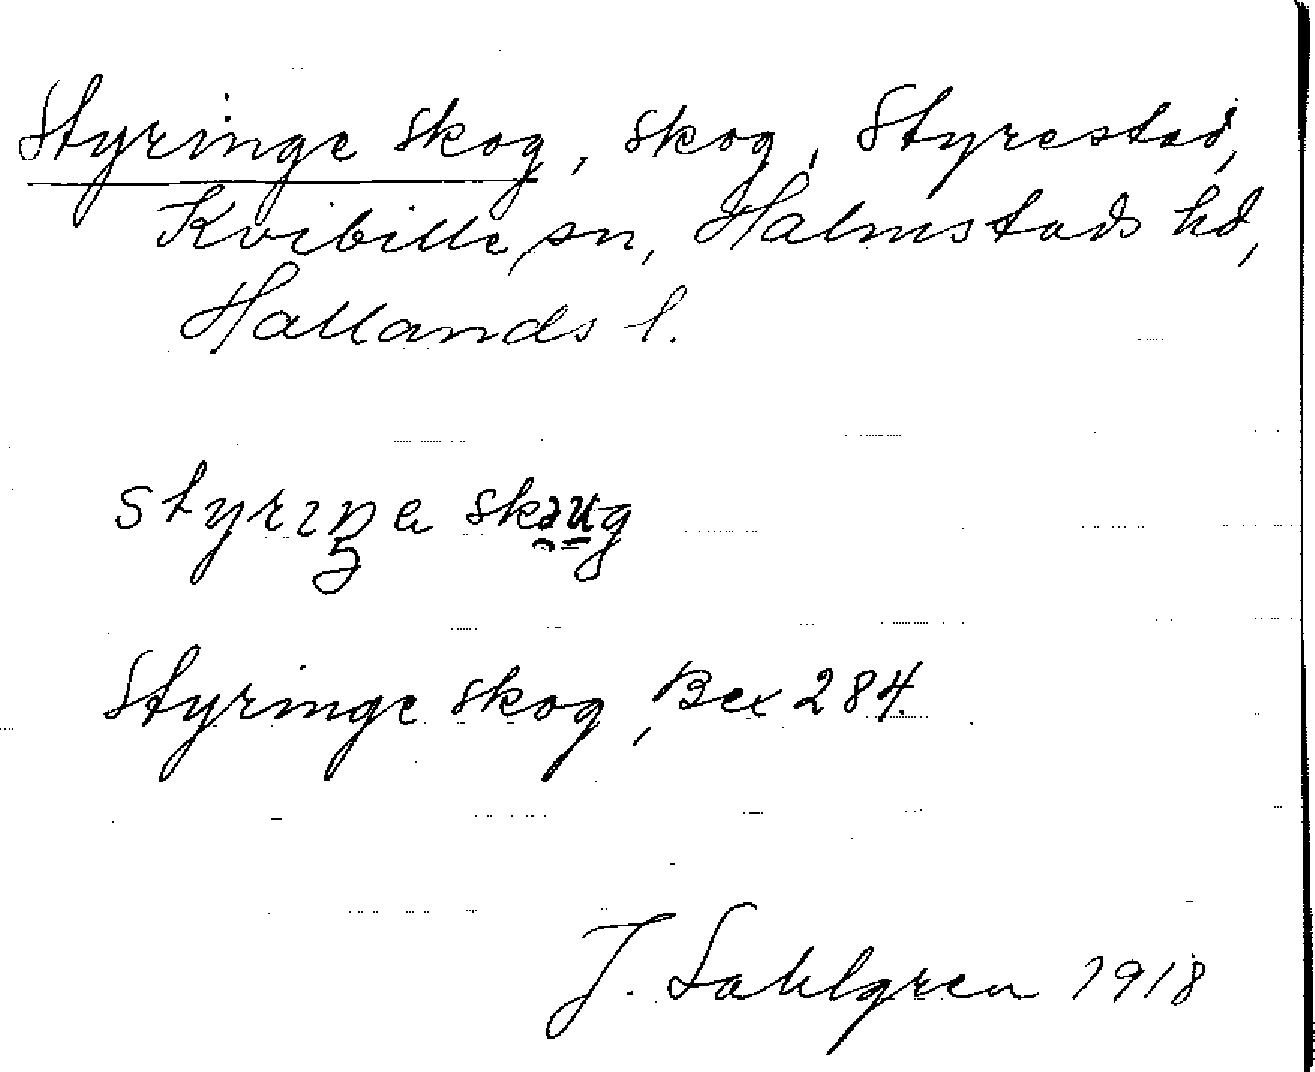 Styringe skog, skog, Styrestad,
Kvibille sn, Halmstads hd,
Hallands l.
skog
Styringe skog, Bex 284.
J. Sahlgren 1918